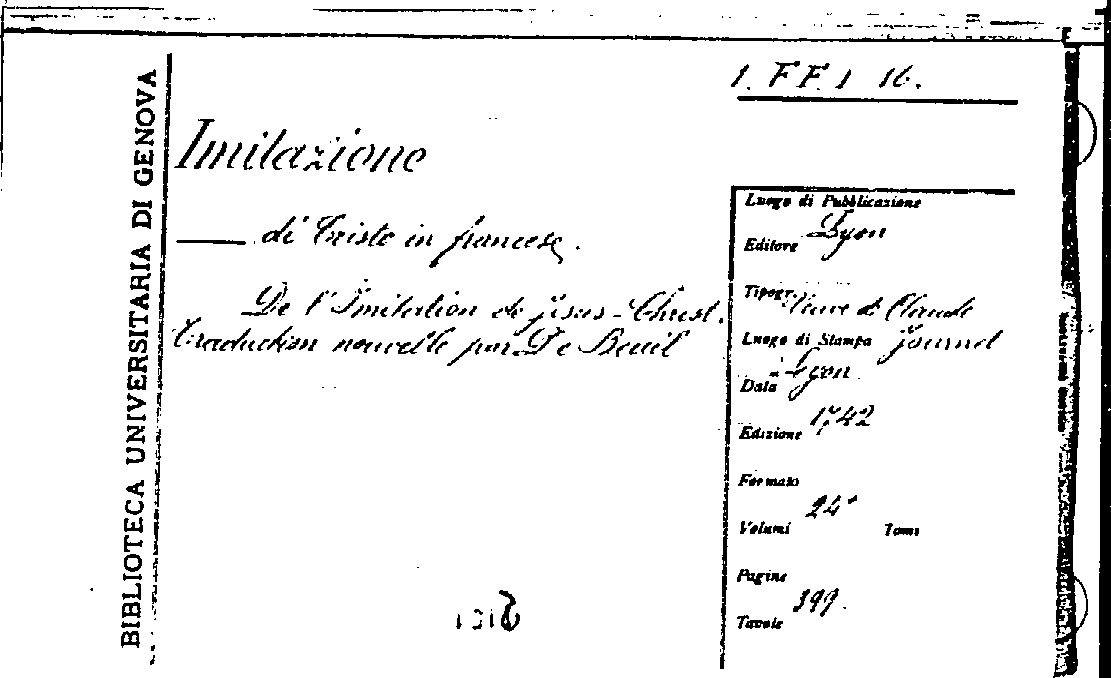 1. FF. 1 16.
BIBLIOTECA UNIVERSITARIA DI GENOVA
Imitazione
di Cristo in francese.
De l'Imitation de Jesus-Christ.
Traduction nouvelle par De Beuil
Luogo di Pubblicazione
Lyon
Editore
Tipogr. Veuve de Claude
Journet
Luogo di Stampa
Lyon
Data
1742
Edizione
Formato
24°
Volumi Tomi
Pagine
399.
Tavole